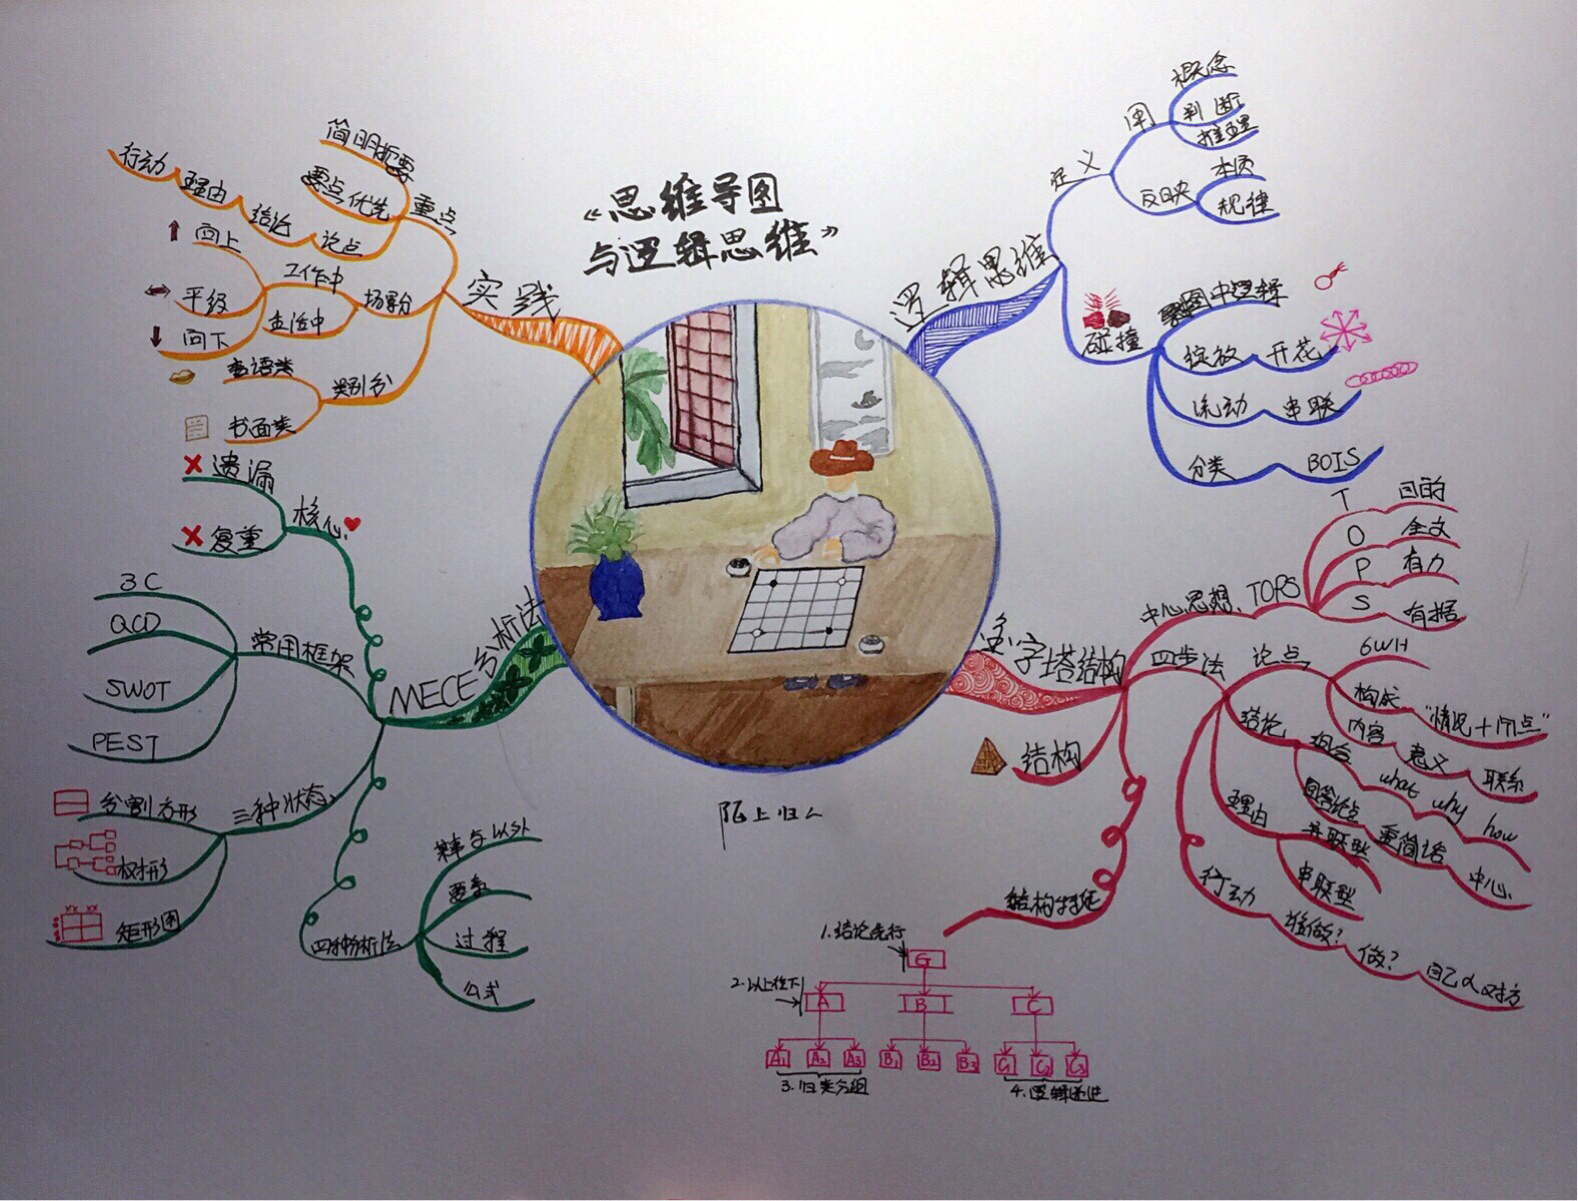 《思维导图
与逻辑思维》
逻辑思维
定义
用
概念
判断
推理
反映
本质
规律
碰撞
绽放
开花
流动
串联
分类
BOIS
金字塔结构
中心思想
TOPS
T
目的
O
全文
P
有力
S
有据
四步法
论点
6WH
构成
"情况+问点"
内容
意义
联系
结论
what
why
how
回答论点
重简洁
中心
理由
并联型
串联型
行动
谁做?
做?
自己 对方
结构
结构特征
1.结论先行
G
2.以上统下
A
B
C
A1
A2
A3
B1
B2
B3
C1
C2
C3
3.归类分组
4.逻辑递进
MECE分析法
核心
遗漏
复重
常用框架
3C
QCD
SWOT
PEST
三种状态
分割方形
权杆形
矩形图
四种分析法
要素
过程
公式
实践
重点
简明扼要
要点优先
论点
结论
理由
行动
场景分
工作中
生活中
向上
平级
向下
类别分
书面类
陌上归人